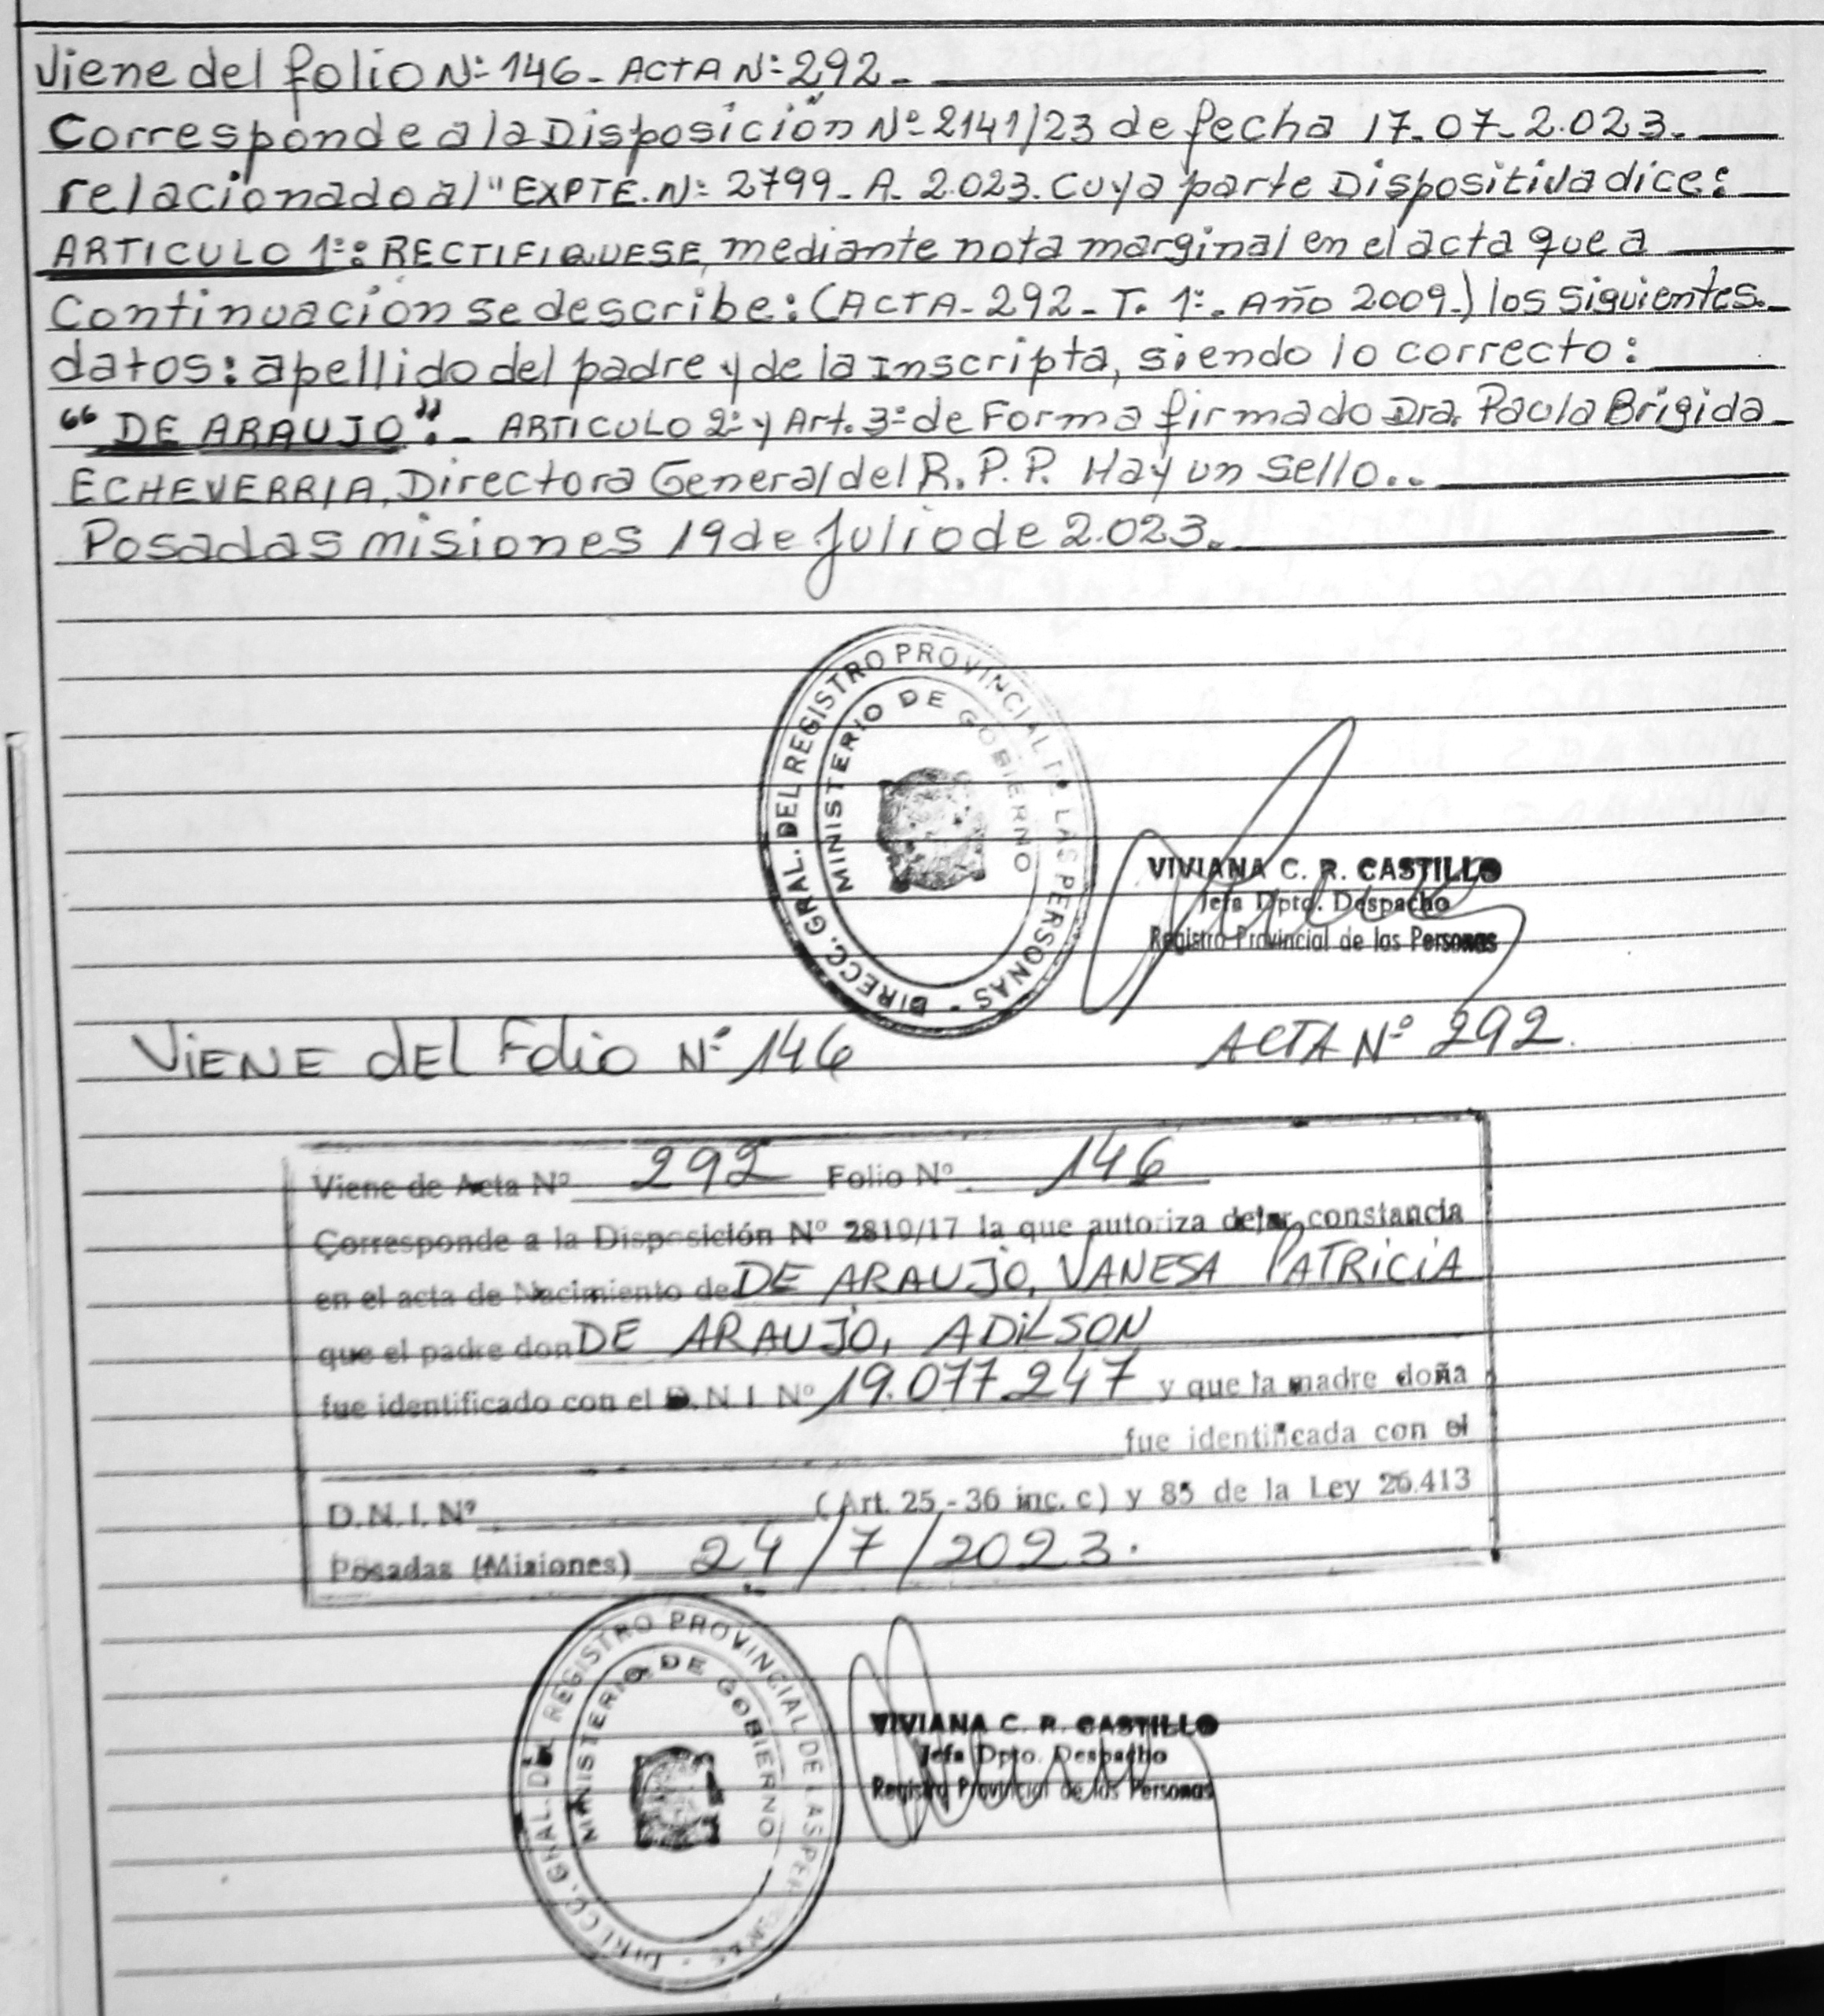 Viene del folio Nº 146 - ACTA Nº 292 -
Corresponde a la Disposición Nº 2141/23 de fecha 17-07-2.023.
relacionado al "EXPTE. Nº 2799-A-2.023. Cuya parte Dispositiva dice:
ARTICULO 1º: RECTIFIQUESE, mediante nota marginal en el acta que a
Continuación se describe: (ACTA-292-T. 1º. Año 2009.) los siguientes
datos: apellido del padre y de la Inscripta, siendo lo correcto:
"DE ARAUJO".- ARTICULO 2º y Art. 3º de Forma firmado Dra. Paola Brigida
ECHEVERRIA, Directora General del R.P.P. Hay un sello..
Posadas misiones 19 de Julio de 2.023.
DIRECC. GRAL. DEL REGISTRO PROVINCIAL DE LAS PERSONAS -
MINISTERIO DE GOBIERNO
VIVIANA C. R. CASTILLO
Jefa Dpto. Despacho
Registro Provincial de las Personas
VIENE dEL Folio Nº 146 ACTA Nº 292.
Viene de Acta Nº 292 Folio Nº 146
Corresponde a la Disposición Nº 2810/17 la que autoriza dejar constancia
en el acta de Nacimiento de DE ARAUJO, VANESA PATRICIA
que el padre don DE ARAUJO, ADILSON
fue identificado con el D.N.I. Nº 19.077.247 y que la madre doña
fue identificada con el
D.N.I. Nº (Art. 25 - 36 inc. c) y 85 de la Ley 26.413
Posadas (Misiones) 24/7/2023.
DIRECC. GRAL. DEL REGISTRO PROVINCIAL DE LAS PERSONAS -
MINISTERIO DE GOBIERNO
VIVIANA C. R. CASTILLO
Jefa Dpto. Despacho
Registro Provincial de las Personas